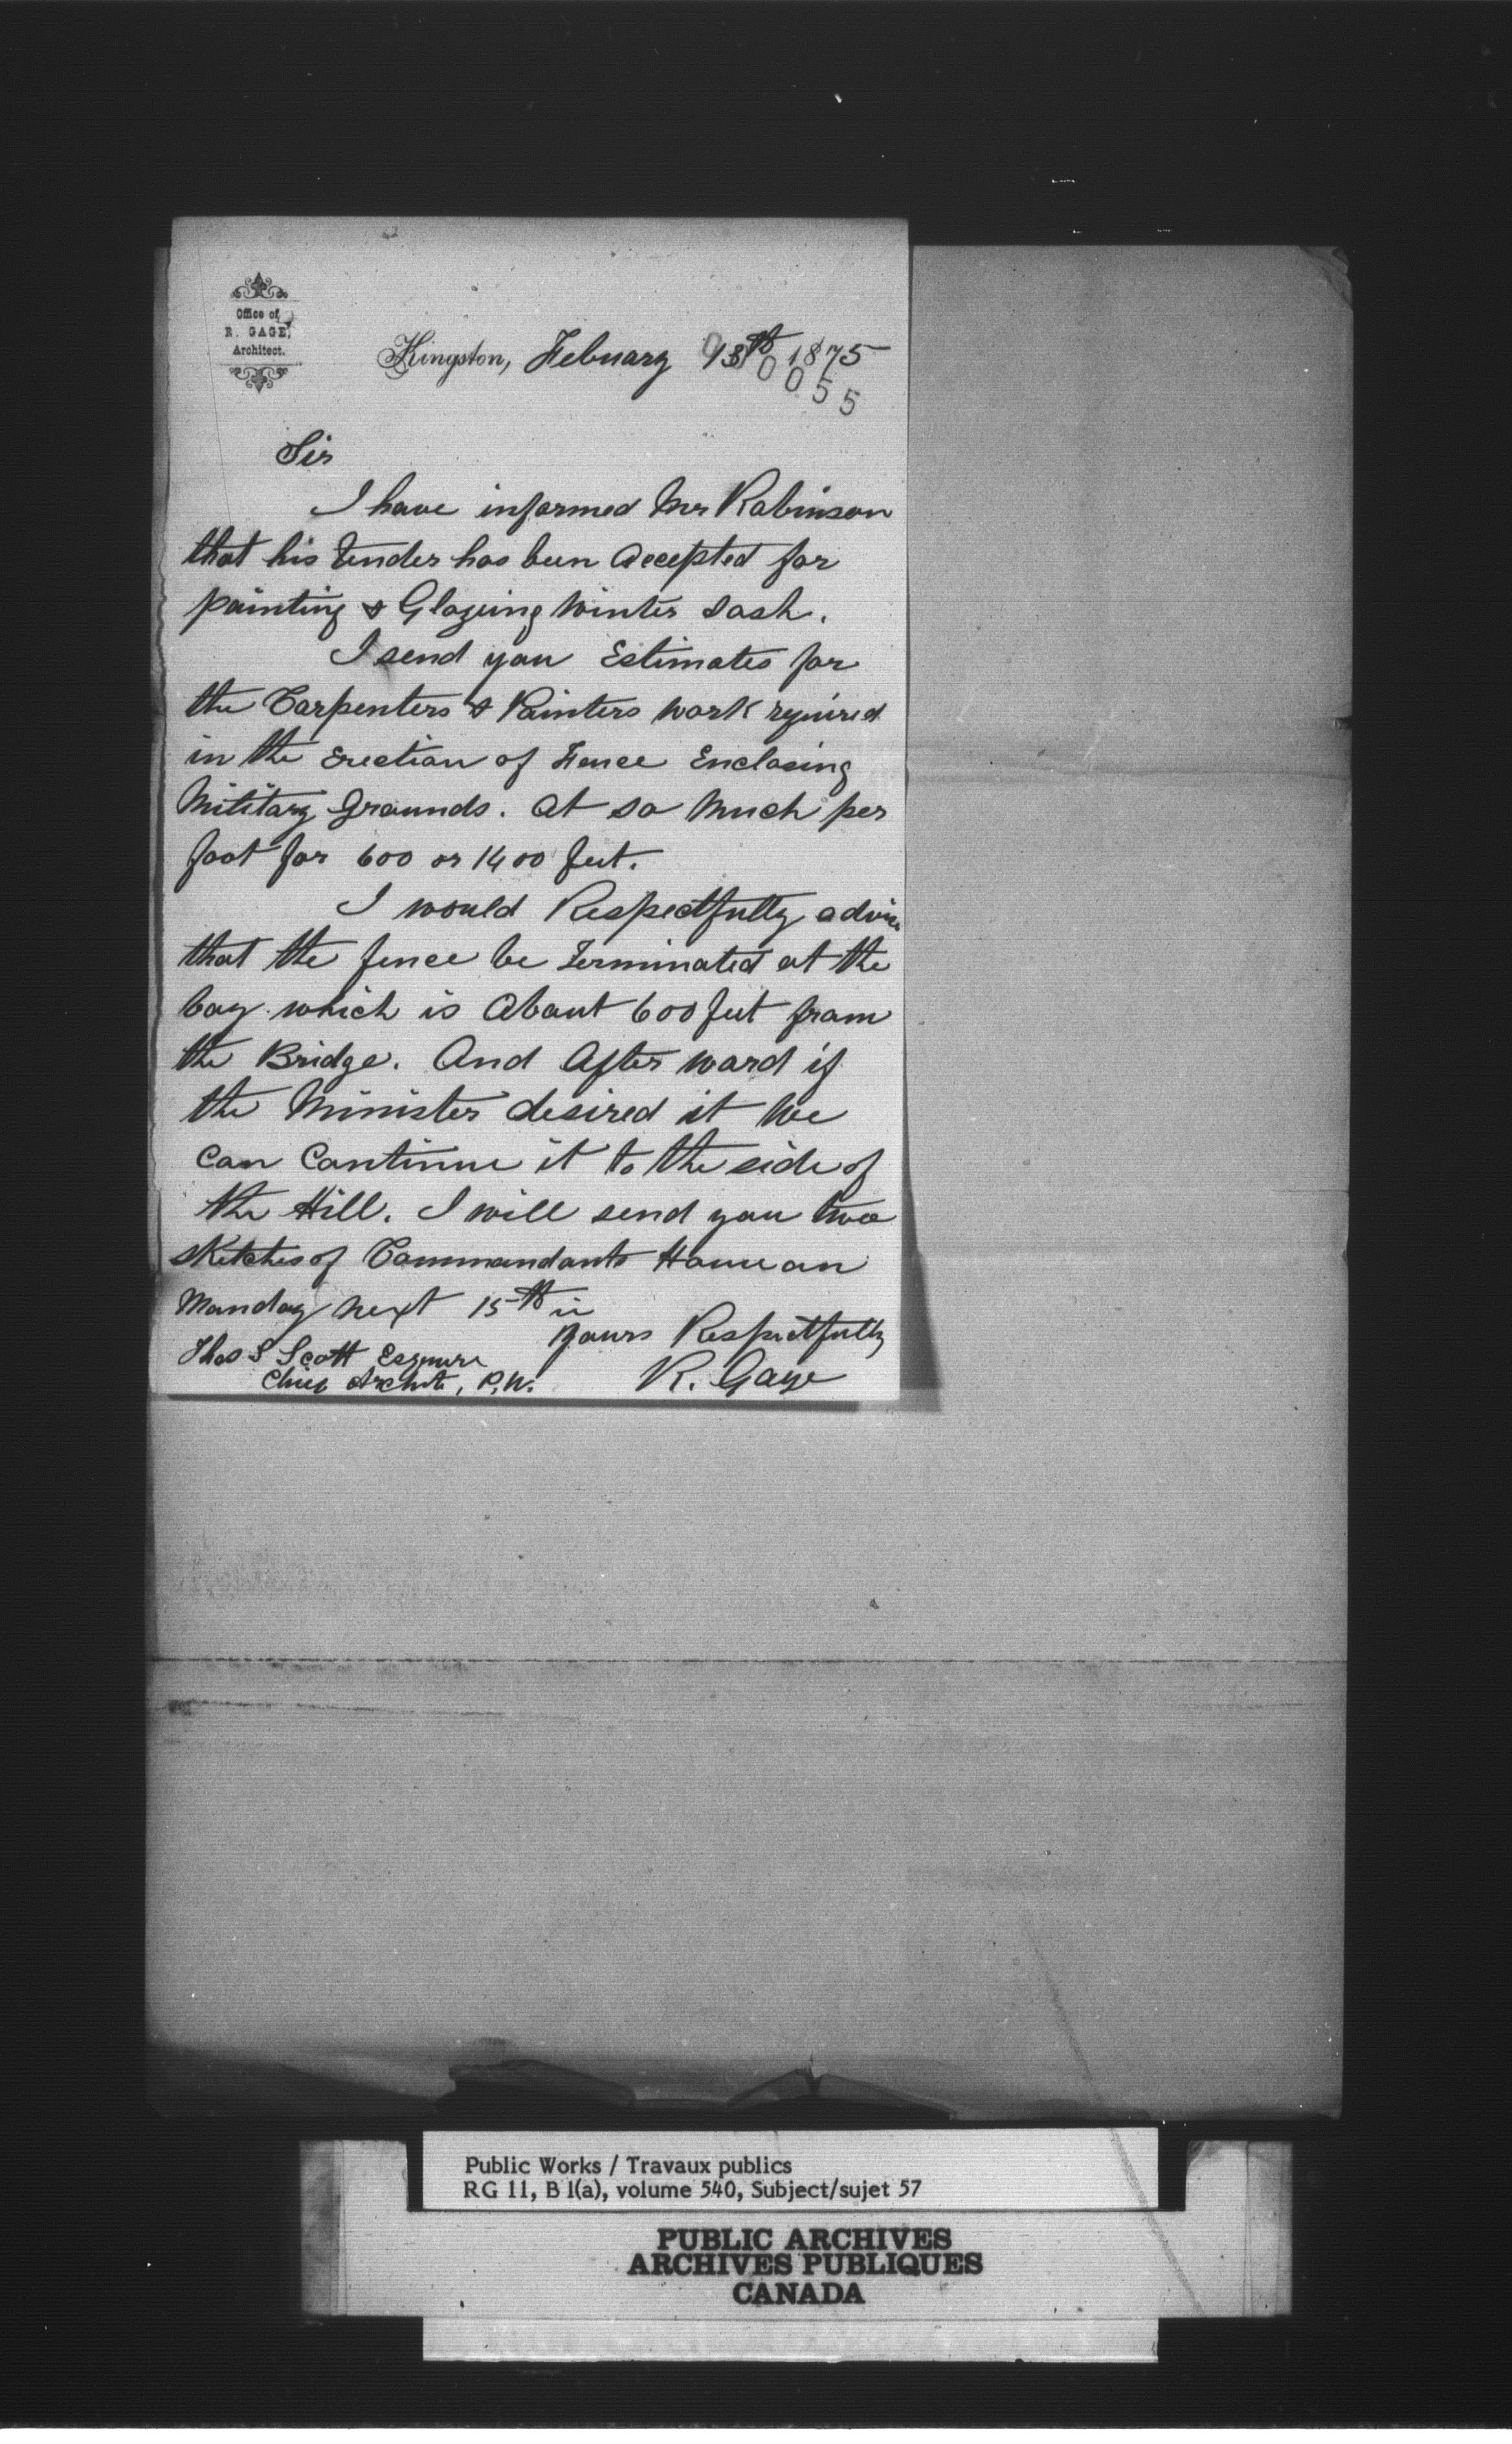 Office of
R. GAGE,
Architect.
Kingston, February 13th 1875
00055
Sir
I have informed Mr Robinson
that his tender has been accepted for
painting & Glazeing Winter Sash.
I send you Estimates for
the Carpenters & Painters work required
in the Erection of Fence Enclosing
Military Grounds. At so Much per
foot for 600 or 1400 feet.
I would Respectfully advise
that the fence be Terminated at the
bay which is About 600 feet from
the Bridge. And After ward if
the Minister desired it We
Can Continue it to the side of
the Hill. I will send you two
sketches of Commandants House on
Monday next 15th
Yours Respectfully
Thos S Scott Esquire
Chief Archt, P.W.
R. Gage
Public Works / Travaux publics
RG 11, B 1(a), volume 540, Subject/sujet 57
PUBLIC ARCHIVES
ARCHIVES PUBLIQUES
CANADA